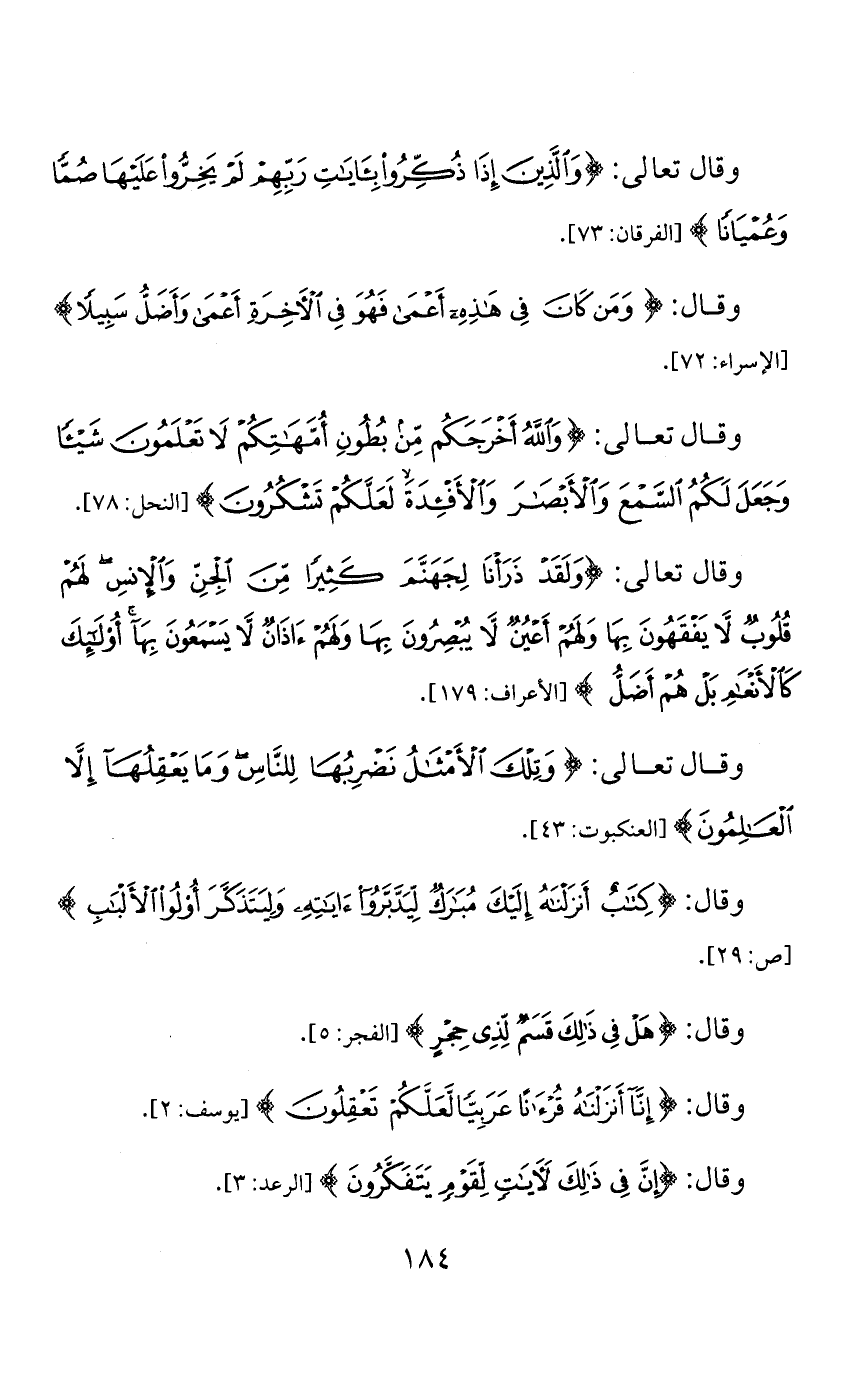 وقال تعالى: ﴿وَٱلَّذِينَ إِذَا ذُكِّرُوا۟ بِـَٔايَٰتِ رَبِّهِمْ لَمْ يَخِرُّوا۟ عَلَيْهَا صُمًّا
وَعُمْيَانًا ﴾ [الفرقان: ٧٣].
وقال: ﴿ وَمَن كَانَ فِى هَٰذِهِۦٓ أَعْمَىٰ فَهُوَ فِى ٱلْأَخِرَةِ أَعْمَىٰ وَأَضَلُّ سَبِيلًا﴾
[الإسراء: ٧٢].
وقال تعالى: ﴿وَٱللَّهُ أَخْرَجَكُم مِّنۢ بُطُونِ أُمَّهَٰتِكُمْ لَا تَعْلَمُونَ شَيْـًٔا
وَجَعَلَ لَكُمُ ٱلسَّمْعَ وَٱلْأَبْصَٰرَ وَٱلْأَفْـِٔدَةَ ۙ لَعَلَّكُمْ تَشْكُرُونَ﴾ [النحل: ٧٨].
وقال تعالى: ﴿وَلَقَدْ ذَرَأْنَا لِجَهَنَّمَ كَثِيرًا مِّنَ ٱلْجِنِّ وَٱلْإِنسِ ۖ لَهُمْ
قُلُوبٌ لَّا يَفْقَهُونَ بِهَا وَلَهُمْ أَعْيُنٌ لَّا يُبْصِرُونَ بِهَا وَلَهُمْ ءَاذَانٌ لَّا يَسْمَعُونَ بِهَآ ۚ أُو۟لَٰٓئِكَ
كَٱلْأَنْعَٰمِ بَلْ هُمْ أَضَلُّ ﴾ [الأعراف: ١٧٩].
وقال تعالى: ﴿ وَتِلْكَ ٱلْأَمْثَٰلُ نَضْرِبُهَا لِلنَّاسِ ۖ وَمَا يَعْقِلُهَآ إِلَّا
ٱلْعَٰلِمُونَ﴾ [العنكبوت: ٤٣].
وقال: ﴿كِتَٰبٌ أَنزَلْنَٰهُ إِلَيْكَ مُبَٰرَكٌ لِّيَدَّبَّرُوٓا۟ ءَايَٰتِهِۦ وَلِيَتَذَكَّرَ أُو۟لُوا۟ ٱلْأَلْبَٰبِ ﴾
[ص: ٢٩].
وقال: ﴿ هَلْ فِى ذَٰلِكَ قَسَمٌ لِّذِى حِجْرٍ ﴾ [الفجر: ٥].
وقال: ﴿ إِنَّآ أَنزَلْنَٰهُ قُرْءَٰنًا عَرَبِيًّا لَّعَلَّكُمْ تَعْقِلُونَ ﴾ [يوسف: ٢].
وقال: ﴿إِنَّ فِى ذَٰلِكَ لَأَيَٰتٍ لِّقَوْمٍ يَتَفَكَّرُونَ ﴾ [الرعد: ٣].
١٨٤